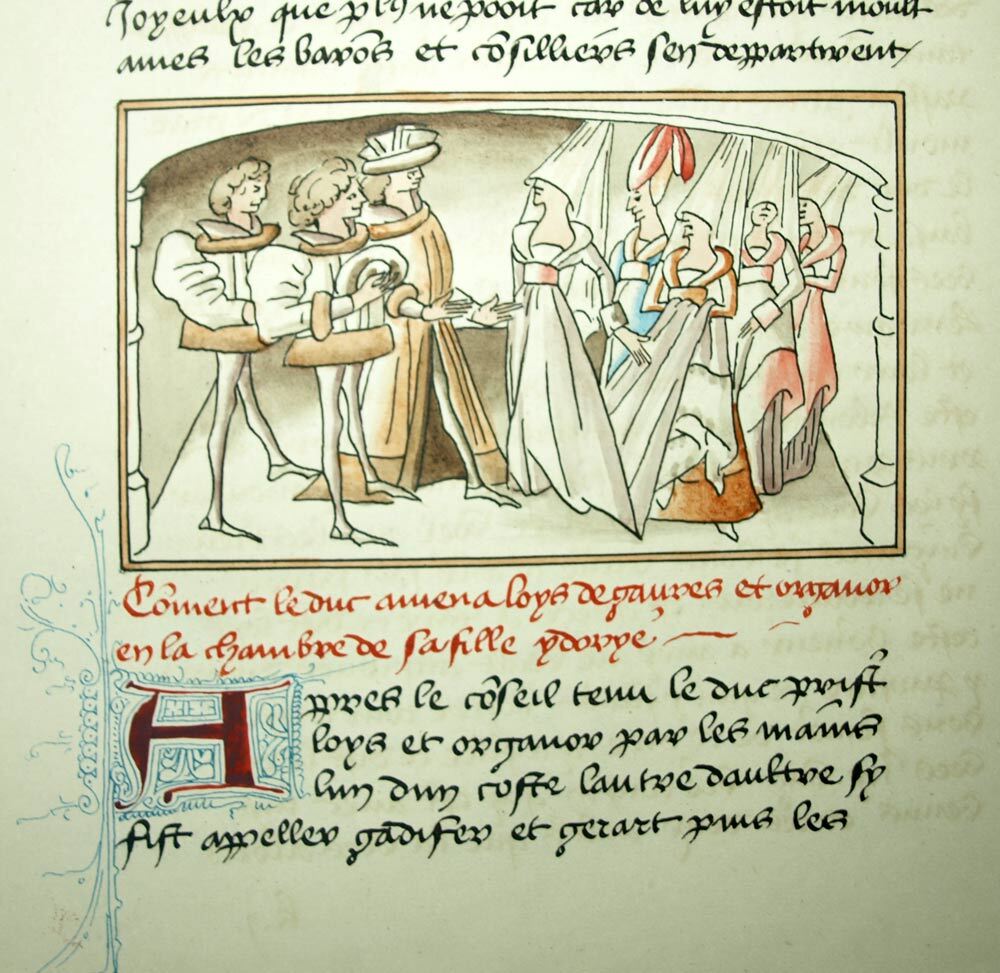 Joyeulx que pl9 ne pooit car de luy estoit moult
ames les barōs et cōsilliers sen deppartirēnt
Cōment le duc amena loys de gavres et organor
en la chambre de sa fille ydorye
Appres le cōseil tenu le duc prist
loys et organor par les mains
lun dun coste lautre daultre sy
fist appeller gadifer et gerart puis les